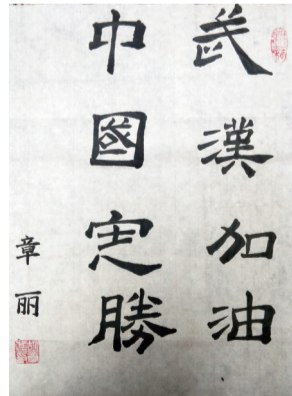 武漢加油
中國定勝
章丽